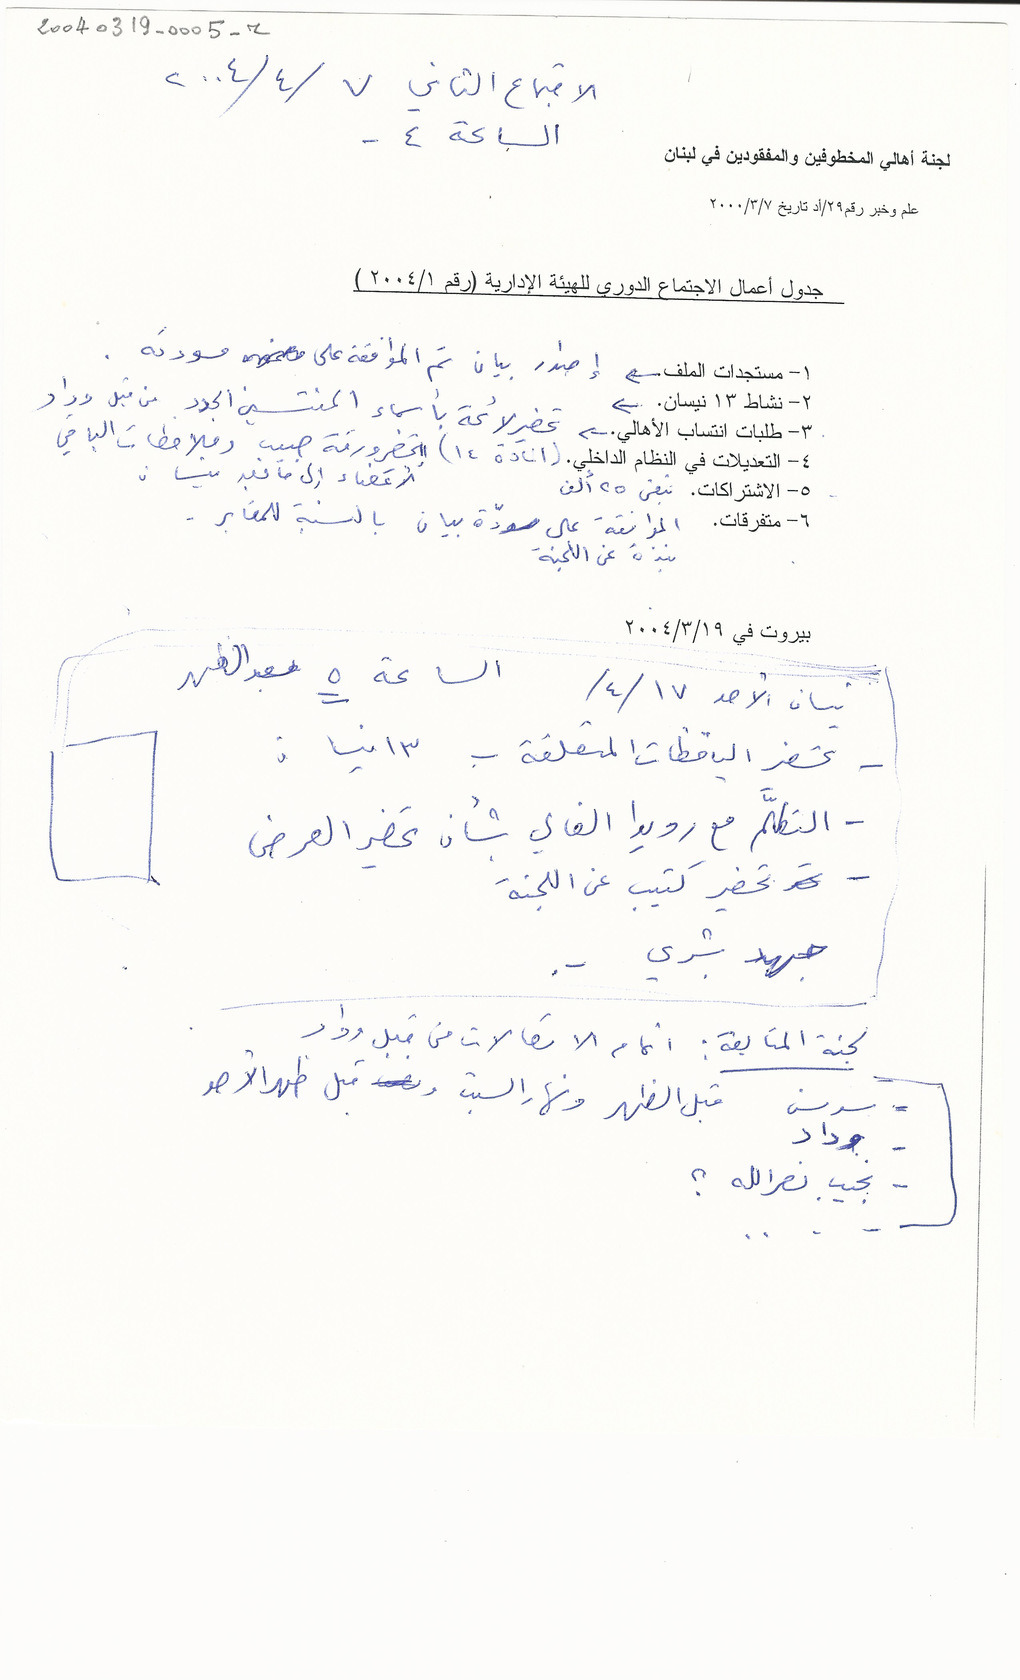 20040319-0005-2
الاجتماع الثاني ٧/٤/٢٠٠٤
الساعة ٤ -
لجنة أهالي المخطوفين والمفقودين في لبنان
علم وخبر رقم٢٩/أد تاريخ ٢٠٠٠/٣/٧
جدول أعمال الاجتماع الدوري للهيئة الإدارية (رقم ٢٠٠٤/١ )
١- مستجدات الملف. ← إصدار بيان تم الموافقة على مسودته .
٢- نشاط ١٣ نيسان. ←
٣- طلبات انتساب الأهالي. ← تحضير لائحة بأسماء المنتسبين الجدد من قبل وداد
٤- التعديلات في النظام الداخلي. (المادة ١٤) تحضر ورقة حبيب وملاحظات الباقي
الأعضاء إلى ما بعد نيسان
٥- الاشتراكات. تبقى ٢٥ ألف
٦- متفرقات. الموافقة على مسودّة بيان بالنسبة للمقابر -
نبذة عن اللجنة
بيروت في ٢٠٠٤/٣/١٩
نيسان الأحد ١٧/٤/ الساعة ٥ بعد الظهر
- تحضير اليافطات المتعلقة بـ ١٣ نيسان
- التكلّم مع رويدا الغالي بشأن تحضير العرض
- تحضير كتيب عن اللجنة
جهد بشري -.
لجنة المتابعة: اتمام الاتصالات من قبل وداد
قبل الظهر ونهار السبت قبل ظهر الأحد
- سوسن
- وداد
- نجيب نصرالله ؟
- . ..